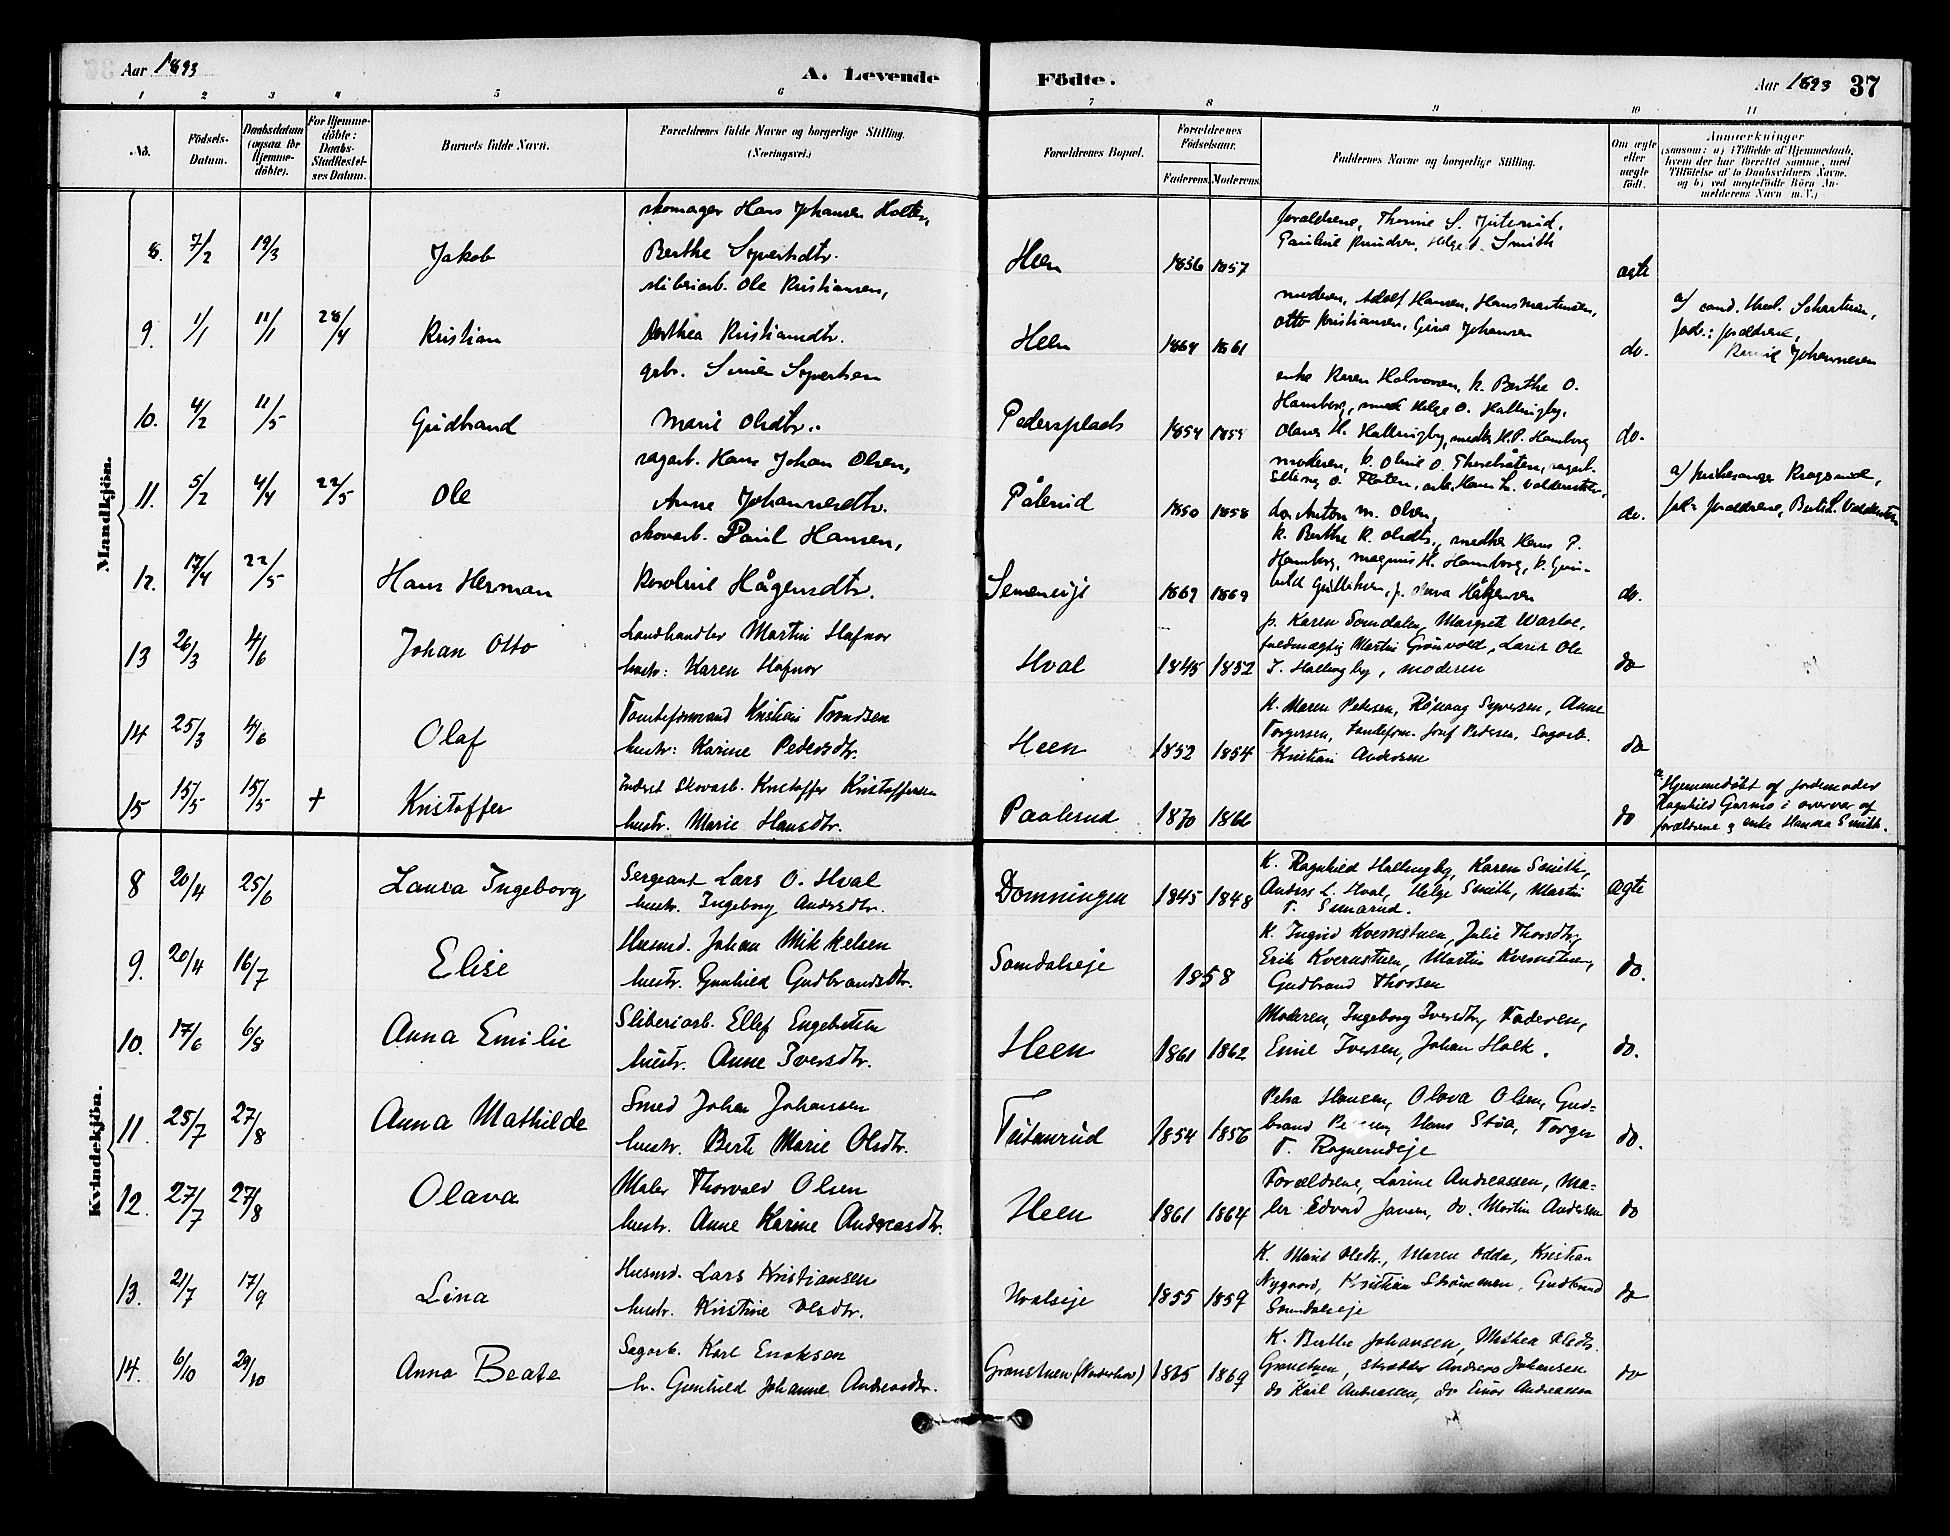 Aar 1893
A. Levende
Födte.
Aar 1893 37
1 2 3 4 5 6 7 8 9 10 11
No.
Födsels-Datum.
Daabsdatum (ogsaa for Hjemmedöbte).
For Hjemmedöbte: Daabs-Stadfestelses Datum.
Barnets fulde Navn.
Forældrenes fulde Navne og borgerlige Stilling. (Næringsvei.)
Forældrenes Bopæl.
Forældrenes Födselsaar.
Faderens. Moderens.
Faddernes Navne og borgerlige Stilling.
Om ægte eller uægte födt.
Anmærkninger
(saasom: a) i Tilfælde af Hjemmedaab, hvem der har forrettet samme, med Tilföielse af to Daabsvidners Navne. og b) ved uægtefödte Börn Anmelderens Navn m.V.)
Mandkjön.
8. 7/2 19/3 Jakob
skomager Hans Johansen Holter,
Berthe Syvertsdtr.
Heen 1856 1857
forældrene, Thorine S.
Pauline Knudsen, Helge S. Smith
ægte
9. 1/1 11/1 28/4 Kristian
sliberiarb. Ole Kristiansen,
Dorthea Kristiansdtr.
Heen 1864 1861
moderen, Adolf Hansen, Hans Martinsen,
Otto Kristiansen, Gina Johansen
do.
a) cand. theol.
fadd.: forældrene,
Johannesen
10. 4/2 11/5 Gudbrand
gbr. Simen Syvertsen
Marie Olsdtr.
Pedersplads 1854 1855
enke Karen Halvorsen, k. Berthe O.
Hamborg, Helge O. Hallingby,
Olaus H. Hallingby, H.P. Hamborg
do.
11. 5/2 4/4 22/5 Ole
sagarb. Hans Johan Olsen,
Anne Johannesdtr.
Pålerud 1850 1858
moderen, k. Oline O.
O. Floten, arb. Hans L.
do. Anton M. Olsen,
do.
a) kirkesanger Kragsrud,
forældrene,
12. 17/4 22/5 Hans Herman
skovarb. Paul Hansen,
Karoline Hågensdtr.
1869 1869
k. Berthe K. Olsdtr., Hans P.
Hamborg, Magnus H. Hamborg, k. Gun-
hild Gulliksen, p. Hågensen
do.
13 26/3 4/6 Johan Otto
Landhandler Martin Hafnor
hustr: Karen Hafnor
Hval 1845 1852
p. Karen Somdalen, Margrete Warloe,
fuldmægtig Martin Grönvold, Ole
T. Hallingby, moderen
do
14 25/3 4/6 Olaf
Tomteformand Kristian Trondsen
hustr: Karine Pedersdtr.
Heen 1852 1854
K. Maren Petersen, Rönnaug Syversen, Anne
Torgersen, tomteform. Josef Pedersen, Sagarb.
Kristian Andersen
do
15 15/5 15/5 + Kristoffer
Inderst Skovarb. Kristoffer Kristoffersen
hustr. Marie Hansdtr.
Paalerud 1870 1866
do
a) Hjemmedöbt af Jordemoder
Ragnhild Garmo i overvær af
forældrene & enke Hanna Smith.
Kvindekjön.
8 20/4 25/6 Laura Ingeborg
Sergeant Lars O. Hval
hustr. Ingeborg Andersdtr.
Domningen 1845 1848
K. Ragnhild Hallingby, Karen Smith,
Anders L. Hval, Helge Smith, Martin
T. Semerud.
ægte
9. 20/4 16/7 Elise
Husmd. Johan Mikkelsen
hustr. Gunhild Gudbrandsdtr.
Somdalseje 1858
K. Ingrid Kvernstuen, Julie Thorsdtr,
Erik Kvernstuen, Martin Kvernstuen,
Gudbrand Thorsen
do.
10. 17/6 6/8 Anna Emilie
Sliberiarb. Ellef Engebretsen
hustr. Anne Iversdtr.
Heen 1861 1862
Moderen, Ingeborg Iversdtr, Faderen,
Emil Iversen, Johan Holk.
do.
11. 25/7 27/8 Anna Mathilde
Smed Johan Johansen
hustr. Berte Marie Olsdtr.
1854 1856
Petra Hansen, Olava Olsen, Gud-
brand Hans Stöa, Torger
T. Ragnerudeje
do.
12. 27/7 27/8 Olava
Maler Thorvald Olsen
hustr. Anne Karine Andreasdtr.
Heen 1861 1864
Forældrene, Larine Andreassen, Ma-
ler Edvard Jansen, do. Martin Andersen
do
13. 21/7 17/9 Lina
Husmd. Lars Kristiansen
hustr. Kristine Olsdtr.
Hvalseje 1855 1859
K. Marit Olsdtr., Maren Odda, Kristian
Nygaard, Kristian Strömmen, Gudbrand
Somdalseje
do
14. 6/10 29/10 Anna Beate
Sagarb. Karl Enoksen
h. Gunhild Johanne Andreasdr.
Granstuen (Norderhov) 1865 1869
K. Berthe Johansen, Mathea Olsdtr.
Granstuen, skrædder Andreas Johansen
do Karl Andreassen, do Einar Andreassen
do